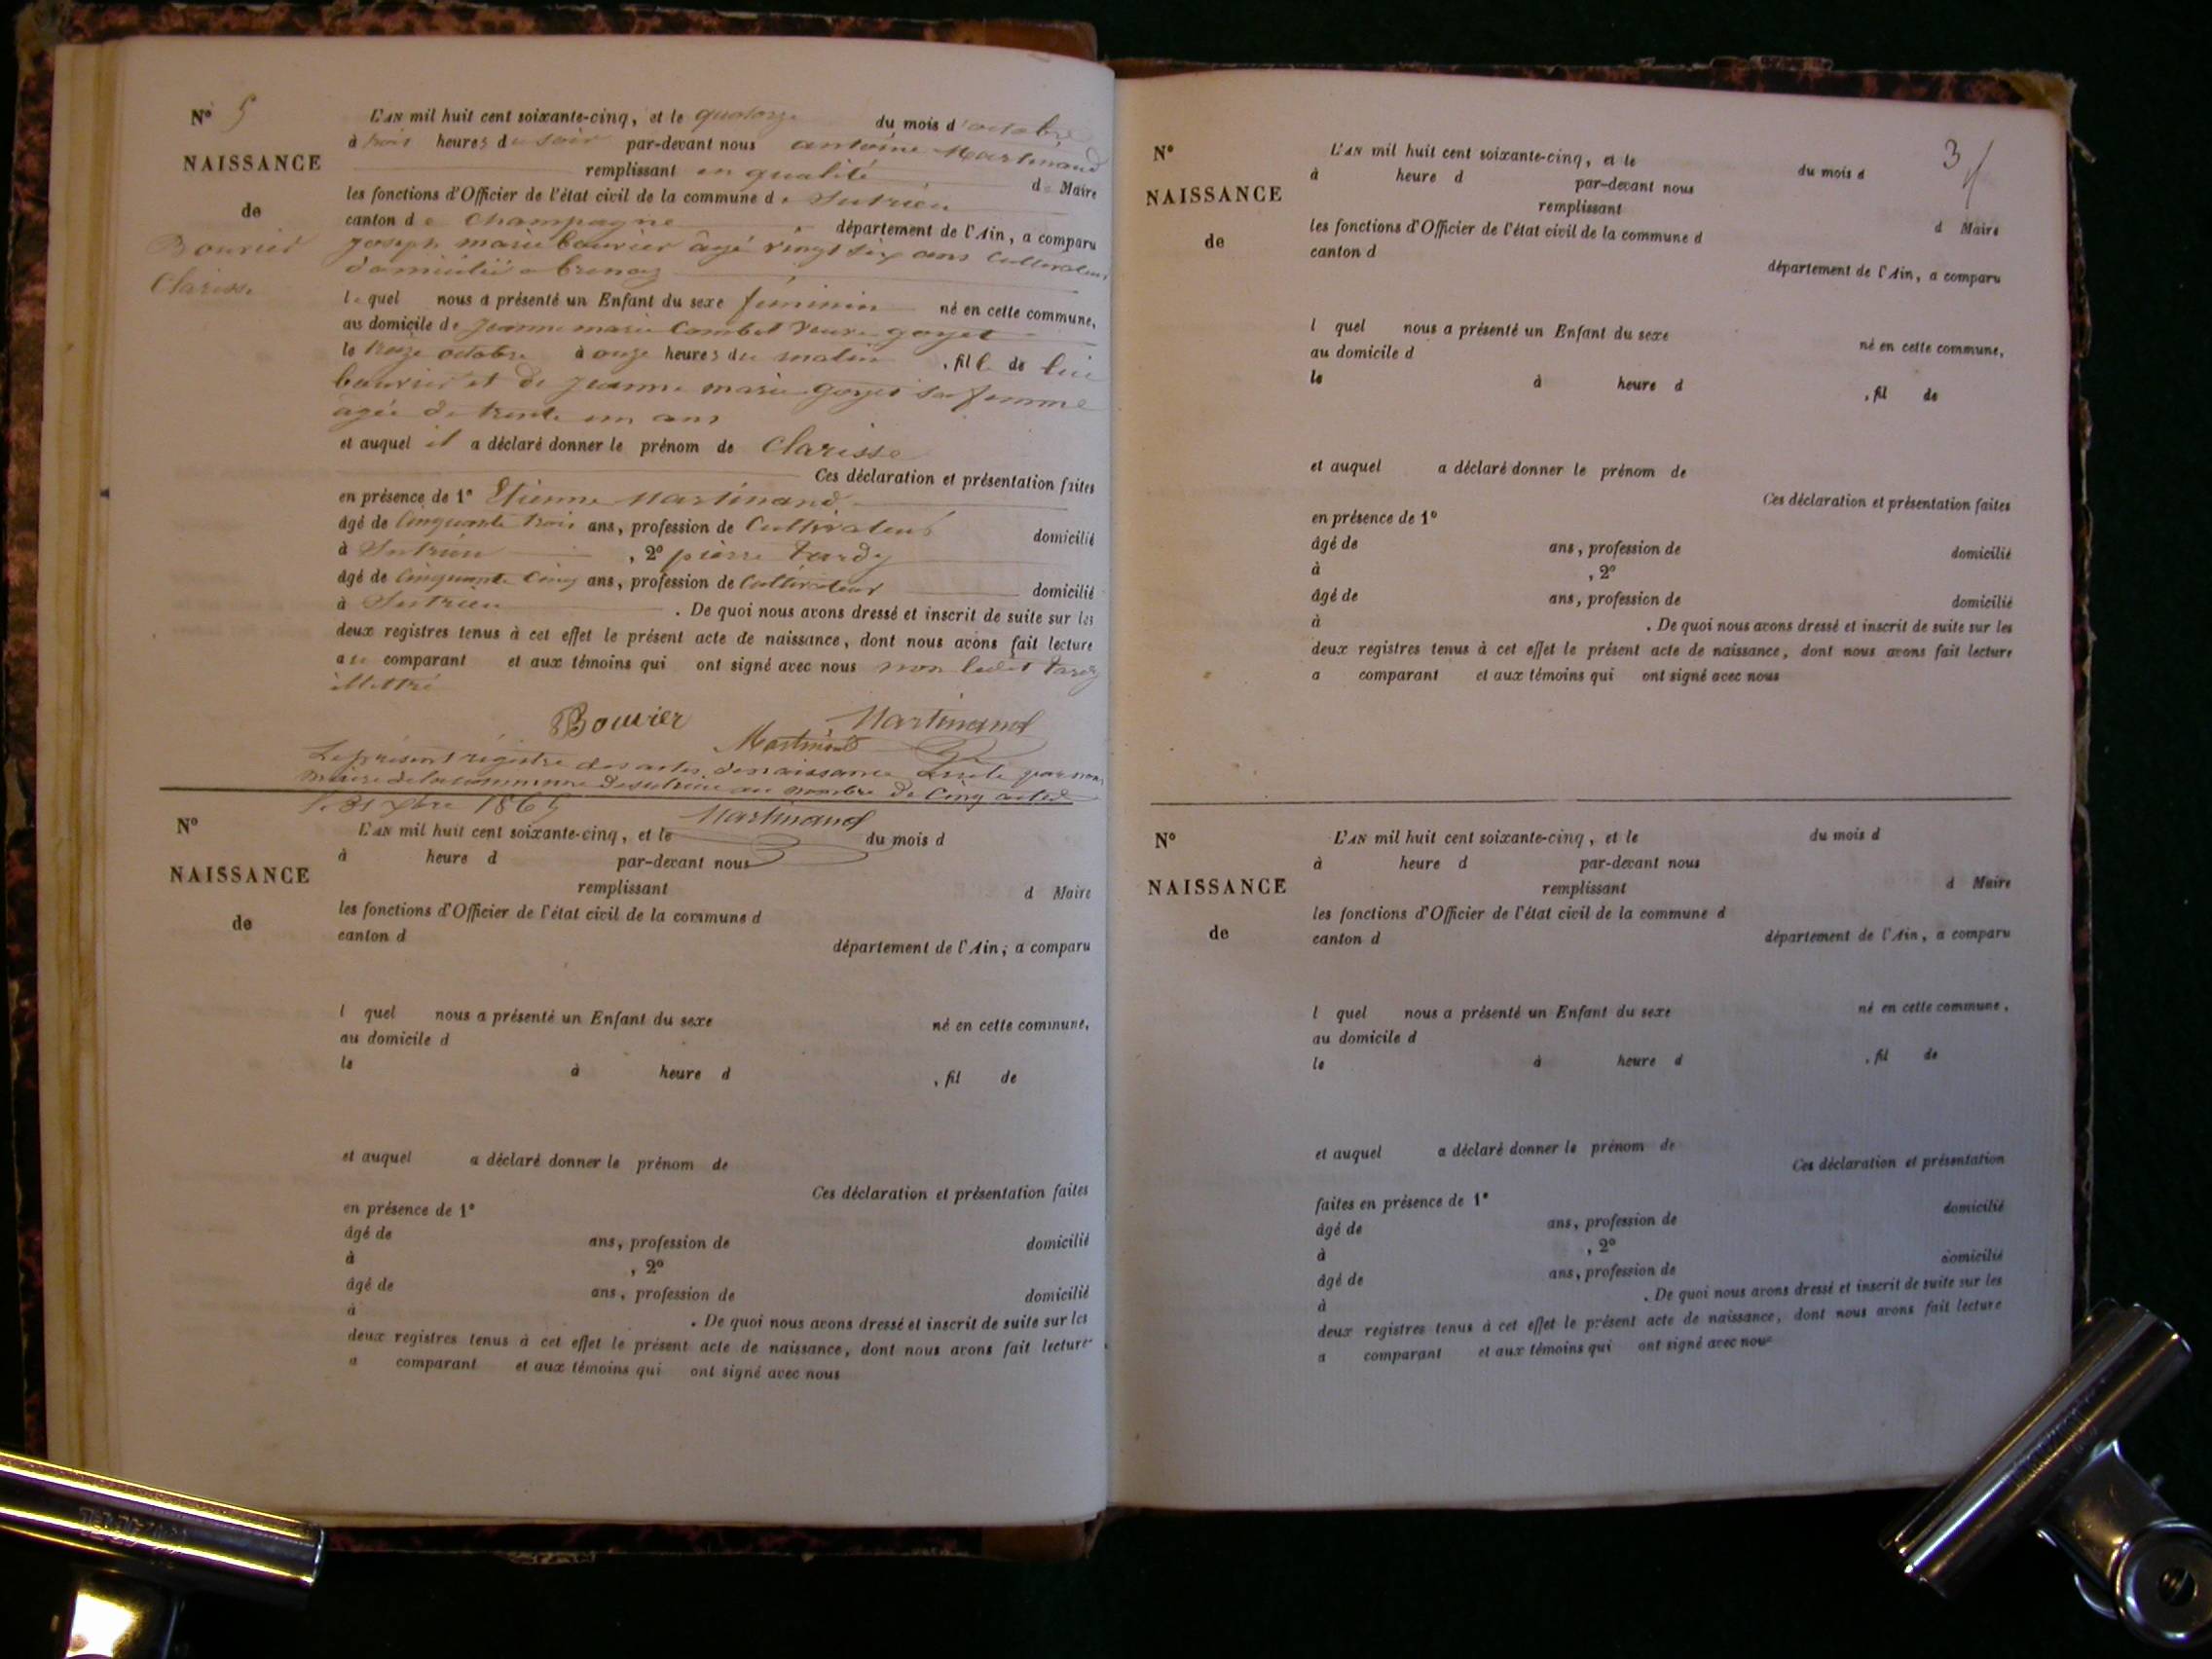 N° 5
NAISSANCE
de
Bouvier
Clarisse
L'AN mil huit cent soixante-cinq, et le quatorze du mois d'octobre
à trois heures du soir par-devant nous antoine Martinand
remplissant en qualité de Maire
les fonctions d'Officier de l'état civil de la commune de Sutrieu
canton de Champagne département de l'Ain, a comparu
joseph marie bouvier âgé vingt six ans Cultivateur
domicilié a brenaz
lequel nous a présenté un Enfant du sexe féminin né en cette commune,
au domicile de jeanne marie Combet veuve goyet
le treize octobre à onze heures du matin , fille de lui
bouvier et de jeanne marie goyet sa femme
agée de trente un ans
et auquel il a déclaré donner le prénom de Clarisse
Ces déclaration et présentation faites
en présence de 1° Etienne Martinand
âgé de Cinquante trois ans, profession de Cultivateur domicilié
à Sutrieu , 2° pierre tardy
âgé de Cinquante Cinq ans, profession de Cultivateur domicilié
à Sutrieu . De quoi nous avons dressé et inscrit de suite sur les
deux registres tenus à cet effet le présent acte de naissance, dont nous avons fait lecture
au comparant et aux témoins qui ont signé avec nous non ledit tardy
illettré
Bouvier Martinand
Martinand
Le présent régistre des actes de naissance par nous
maire de la commune de sutrieu au nombre de Cinq actes
le 31 xbre 1865
Martinand
N°
NAISSANCE
de
L'AN mil huit cent soixante-cinq, et le du mois d
à heure d par-devant nous
remplissant d Maire
les fonctions d'Officier de l'état civil de la commune d
canton d
département de l'Ain, a comparu
l quel nous a présenté un Enfant du sexe né en cette commune,
au domicile d
le à heure d , fil de
et auquel a déclaré donner le prénom de
Ces déclaration et présentation faites
en présence de 1°
âgé de ans, profession de domicilié
à , 2°
âgé de ans, profession de domicilié
à . De quoi nous avons dressé et inscrit de suite sur les
deux registres tenus à cet effet le présent acte de naissance, dont nous avons fait lecture
a comparant et aux témoins qui ont signé avec nous
3
N°
NAISSANCE
de
L'AN mil huit cent soixante-cinq, et le du mois d
à heure d par-devant nous
remplissant d Maire
les fonctions d'Officier de l'état civil de la commune d
canton d
département de l'Ain, a comparu
l quel nous a présenté un Enfant du sexe né en cette commune,
au domicile d
le à heure d , fil de
et auquel a déclaré donner le prénom de
Ces déclaration et présentation faites
en présence de 1°
âgé de ans, profession de domicilié
à , 2°
âgé de ans, profession de domicilié
à . De quoi nous avons dressé et inscrit de suite sur les
deux registres tenus à cet effet le présent acte de naissance, dont nous avons fait lecture
a comparant et aux témoins qui ont signé avec nous
N°
NAISSANCE
de
L'AN mil huit cent soixante-cinq, et le du mois d
à heure d par-devant nous
remplissant d Maire
les fonctions d'Officier de l'état civil de la commune d
canton d département de l'Ain, a comparu
l quel nous a présenté un Enfant du sexe né en cette commune,
au domicile d
le à heure d , fil de
et auquel a déclaré donner le prénom de
Ces déclaration et présentation
faites en présence de 1°
âgé de ans, profession de domicilié
à , 2°
âgé de ans, profession de domicilié
à . De quoi nous avons dressé et inscrit de suite sur les
deux registres tenus à cet effet le présent acte de naissance, dont nous avons fait lecture
a comparant et aux témoins qui ont signé avec nous